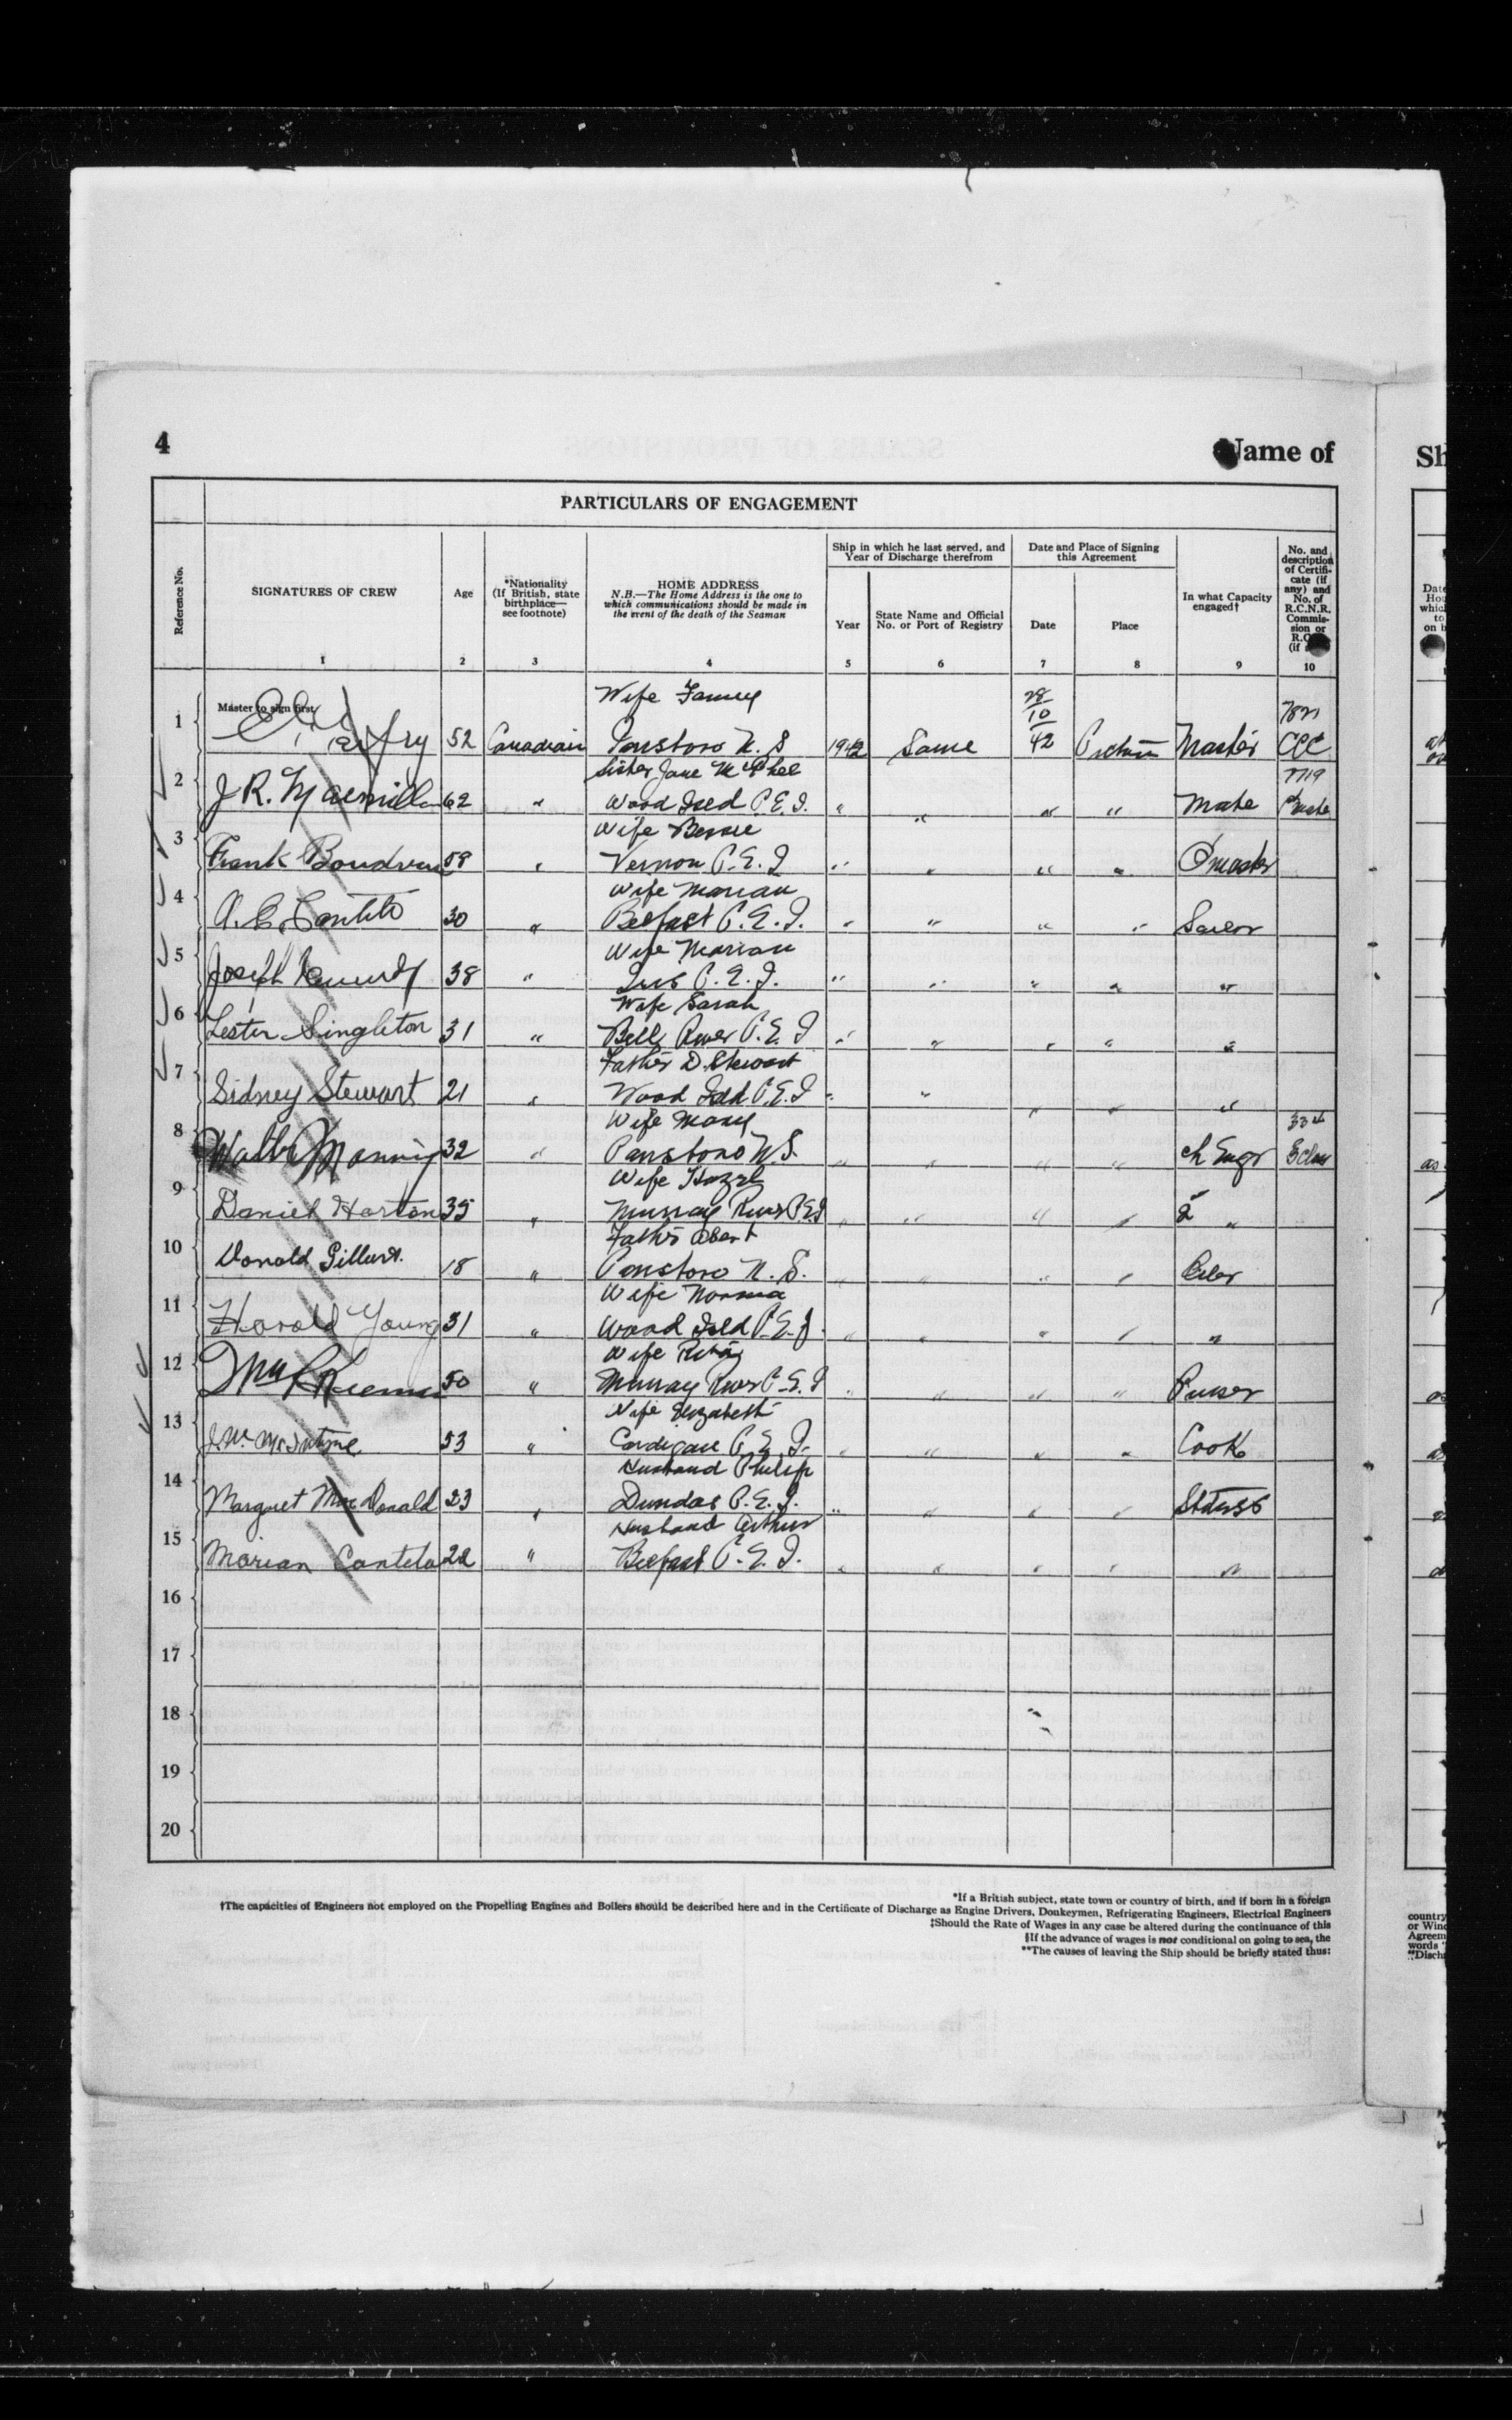 4
Name of
PARTICULARS OF ENGAGEMENT
Reference No.
SIGNATURES OF CREW
1
Age
2
*Nationality
(If British, state
birthplace—
see footnote)
3
HOME ADDRESS
N.B.—The Home Address is the one to
which communications should be made in
the event of the death of the Seaman
4
Ship in which he last served, and
Year of Discharge therefrom
Year
5
State Name and Official
No. or Port of Registry
6
Date and Place of Signing
this Agreement
Date
7
Place
8
In what Capacity
engaged†
9
No. and
description
of Certifi-
cate (if
any) and
No. of
R.C.N.R.
Commis-
sion or
(if
10
Master to sign first
Wife Fanny
28
10
1 52 Canadian Parrsboro N.S 1942 Same 42 Pictou Master
Sister Jane McPhee 7719
2 J R. Macmillan 62 " Wood Isld P.E.I. " " " " Mate Mate
Wife Bessie
3 Frank Boudreau 59 " Vernon P.E.I " " " "
Wife Marian
4 30 " Belfast P.E.I. " " " " Sailor
Wife Marian
5 Joseph Kennedy 38 " P.E.I. " " " " "
Wife Sarah
6 Lester Singleton 31 " Bell River P.E.I " " " " "
Father D. Stewart
7 Sidney Stewart 21 " Wood Isld P.E.I " " " " "
Wife Mary
8 Manning 32 " Parrsboro N.S. " " " " Ch Engr
Wife Hazel
9 Daniel Horton 35 " Murray River P.E.I " " " " 2 "
Father
10 Donald 18 " Parrsboro N.S. " " " " Oiler
Wife Norma
11 Harold Young 31 " Wood Isld P.E.I. " " " " "
Wife
12 50 " Murray River P.E.I " " " " Purser
Wife Elizabeth
13 McIntyre 53 " Cardigan P.E.I. " " " " Cook
Husband Philip
14 Margaret MacDonald 23 " Dundas P.E.I. " " " "
Husband Arthur
15 Marian Cantelo 22 " Belfast P.E.I. " " " " "
16
17
18
19
20
*If a British subject, state town or country of birth, and if born in a foreign
†The capacities of Engineers not employed on the Propelling Engines and Boilers should be described here and in the Certificate of Discharge as Engine Drivers, Donkeymen, Refrigerating Engineers, Electrical Engineers
‡Should the Rate of Wages in any case be altered during the continuance of this
§If the advance of wages is not conditional on going to sea, the
**The causes of leaving the Ship should be briefly stated thus:
country
or
Agreem
words